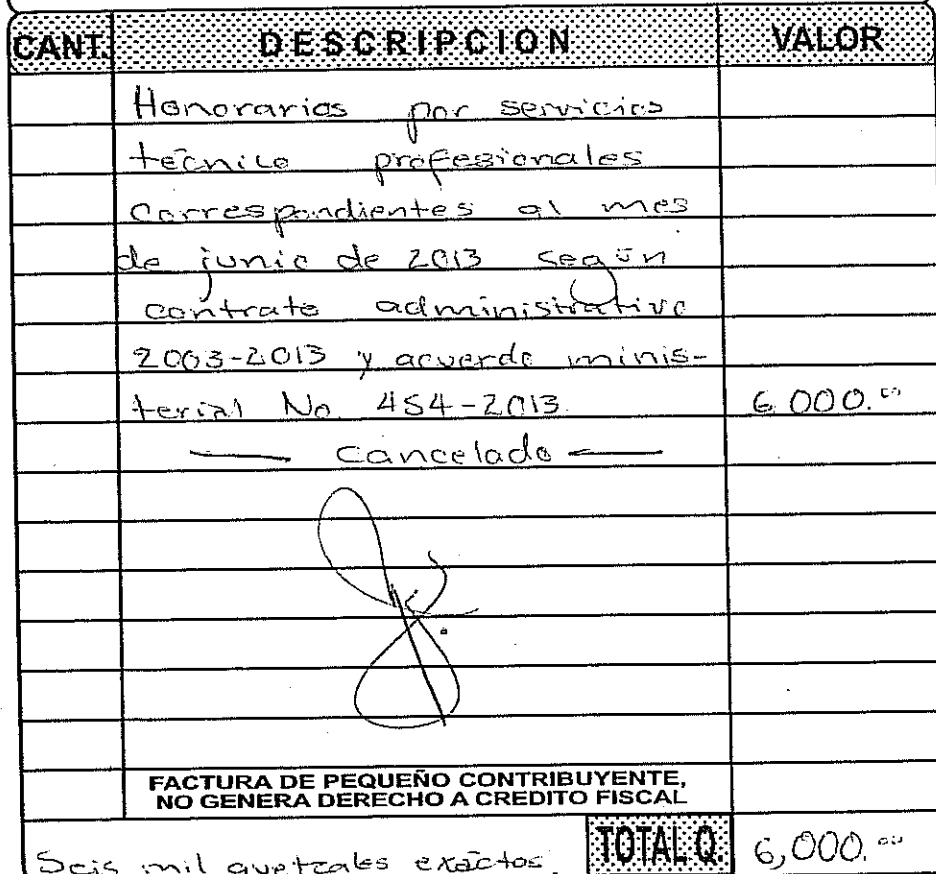 CANT. DESCRIPCION VALOR
Honorarios por servicios
técnico profesionales
correspondientes al mes
de junio de 2013 según
contrato administrativo
2003-2013 y acuerdo minis-
terial No. 454-2013. 6 000.00
— Cancelado —
FACTURA DE PEQUEÑO CONTRIBUYENTE,
NO GENERA DERECHO A CREDITO FISCAL
Seis mil quetzales exactos. TOTAL Q. 6,000.00